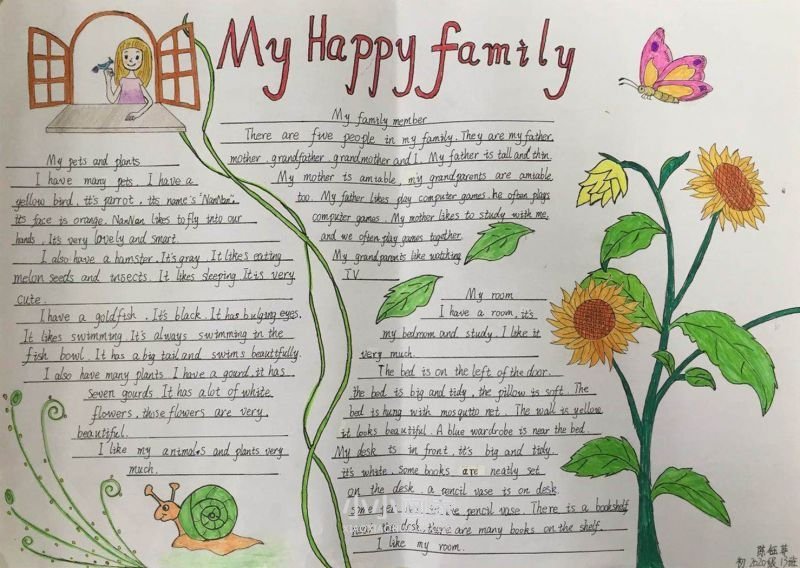 My Happy family
My pets and plants
I have many pets. I have a
yellow bird. it's parrot. its name's "NanNan".
its face is orange. NanNan likes to fly into our
hands. Its very lovely and smart.
I also have a hamster. It's gray. It likes eating
melon seeds and insects. It likes sleeping It is very
cute.
I have a goldfish. It's black. It has bulging eyes.
It likes swimming It's always swimming in the
fish bowl. It has a big tail and swims beautifully.
I also have many plants. I have a gourd, it has
seven gourds It has a lot of white
flowers, those flowers are very
beautiful.
I like my animals and plants very
much.
My family member
There are five people in my family. They are my father,
mother, grandfather, grandmother and I. My father is tall and thin.
My mother is amiable, my grandparents are amiable
too. My father likes play computer games. he often plays
computer games. My mother likes to study with me,
and we often play games together.
My grandparents like watching
TV.
My room
I have a room, it's
my bedroom and study. I like it
very much.
The bed is on the left of the door.
the bed is big and tidy, the pillow is soft. The
bed is hung with mosquito net. The wall is yellow
it looks beautiful. A blue wardrobe is near the bed.
My desk is in front, it's big and tidy.
it's white. Some books are neatly set
on the desk. a pencil vase is on desk.
some pencil vase. There is a bookshelf
the desk, there are many books on the shelf.
I like my room.
初2020级13班